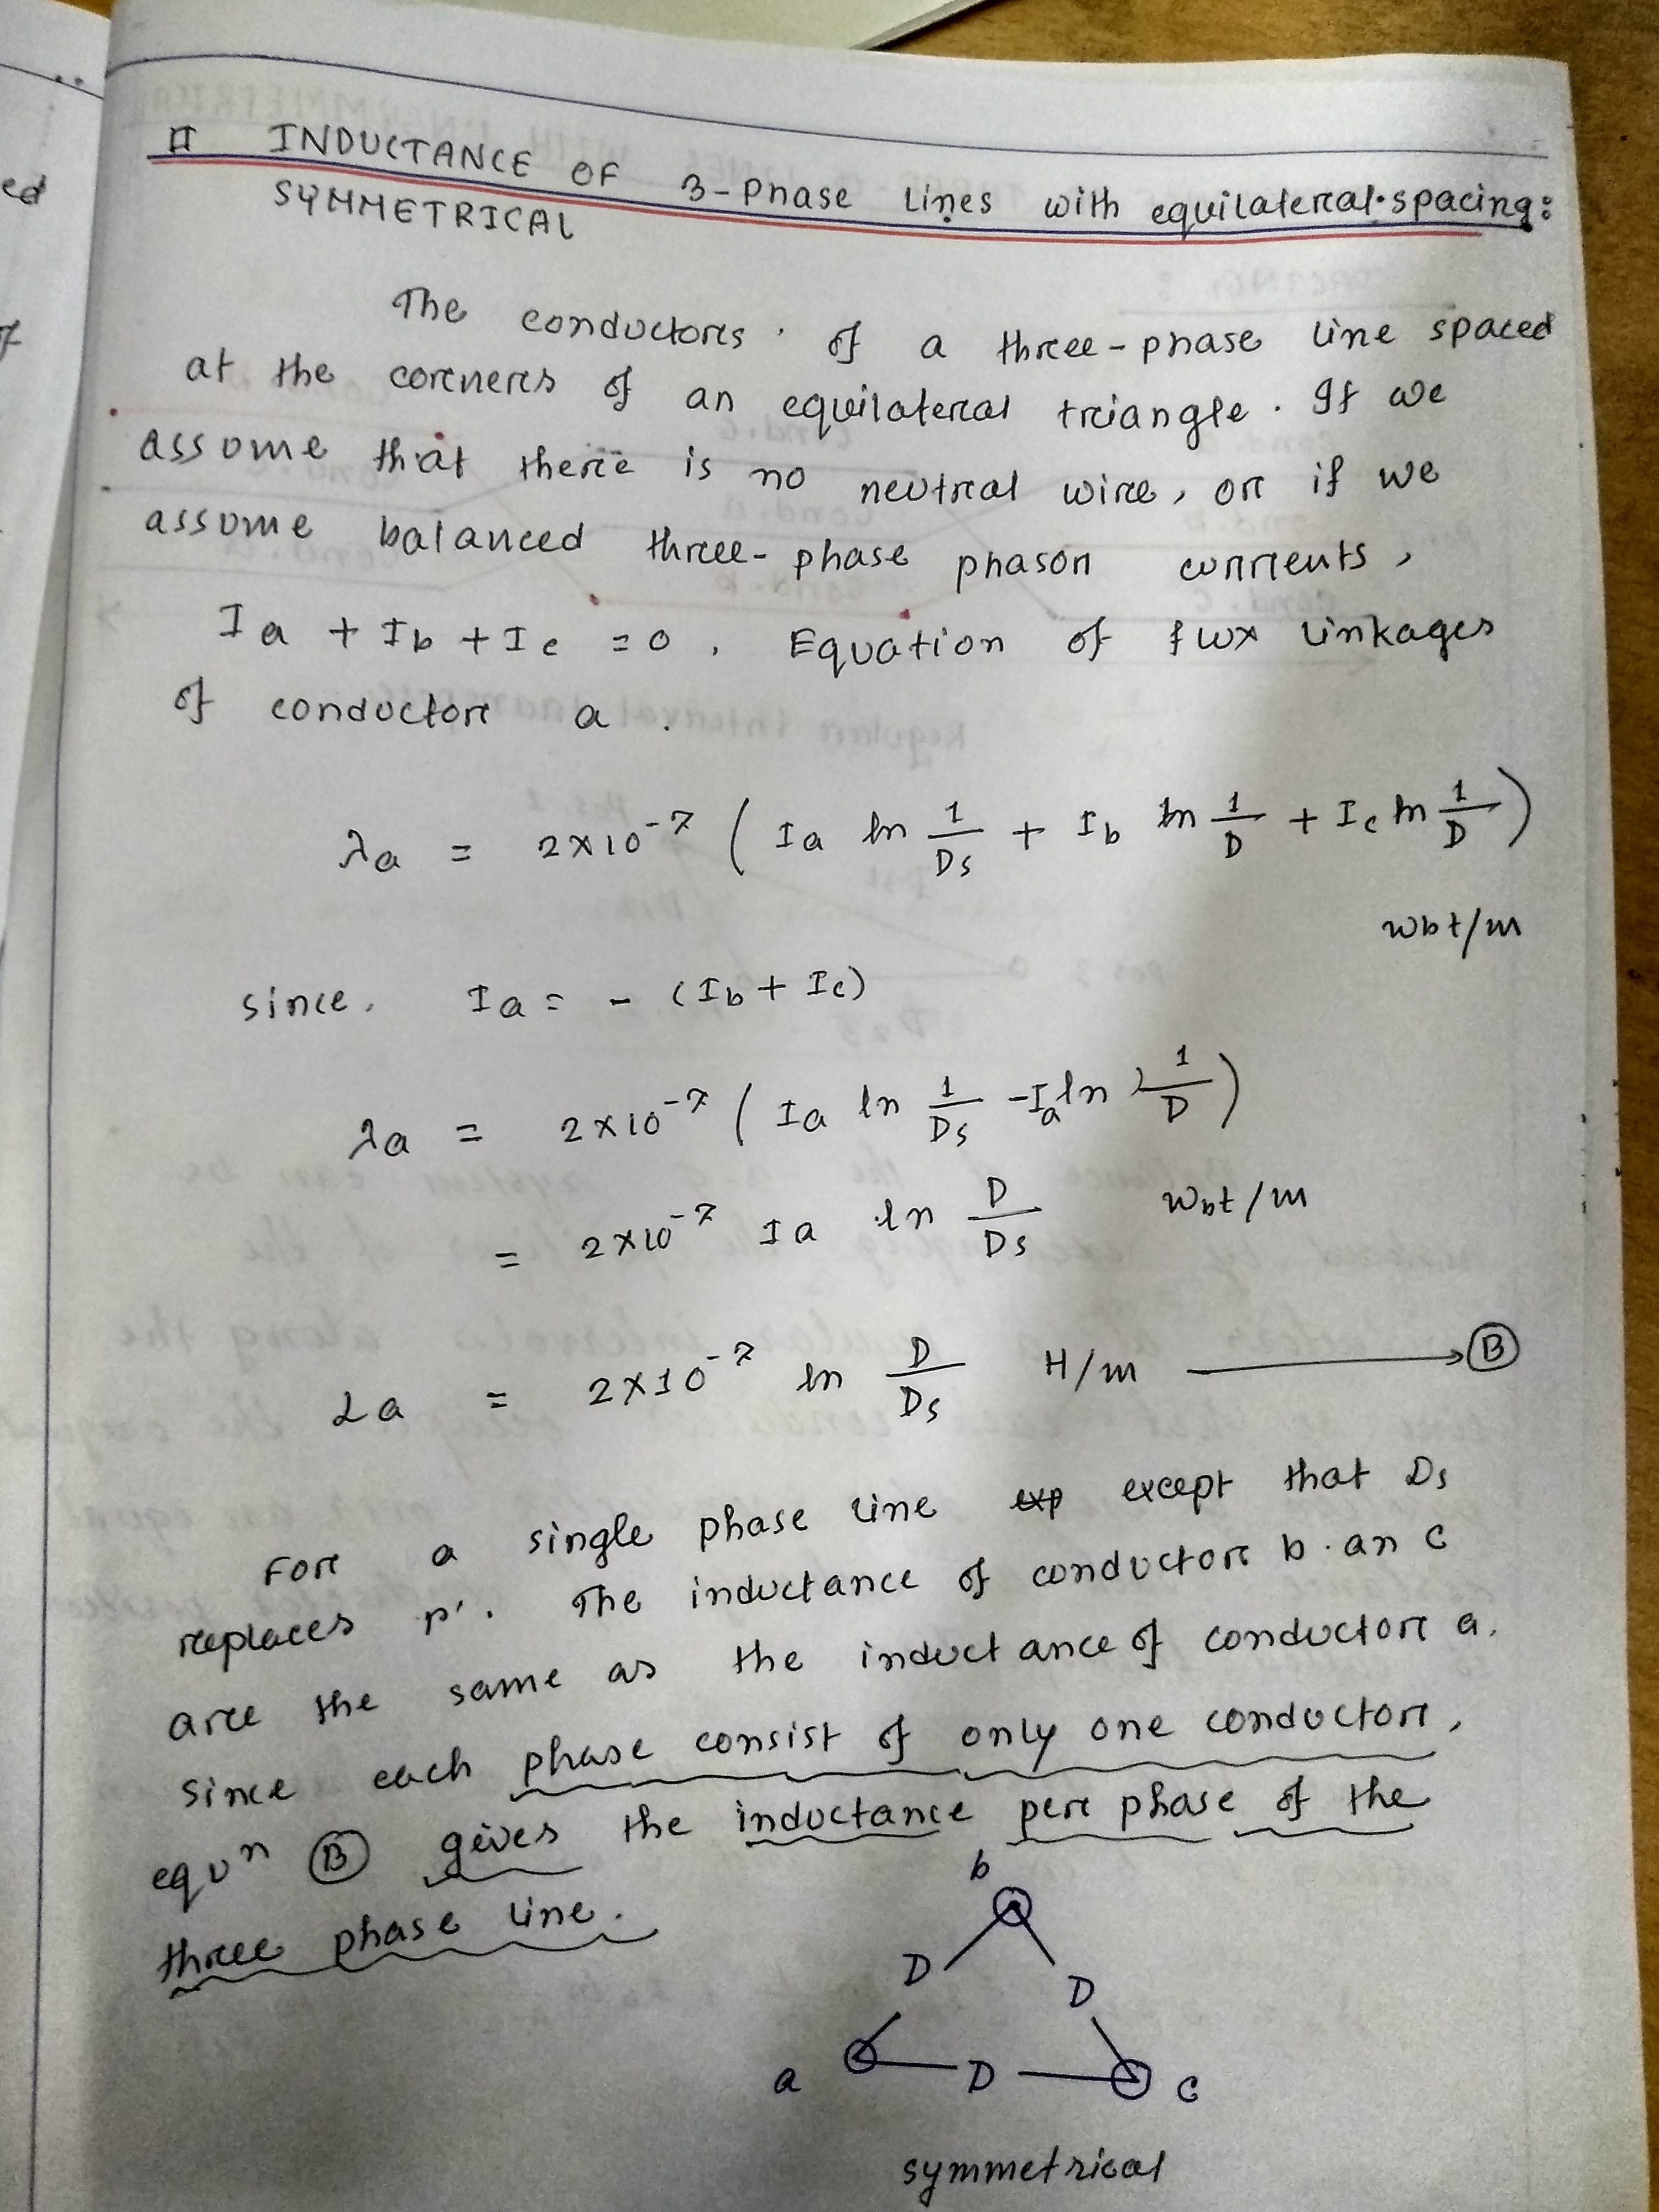 INDUCTANCE OF 3-Phase Lines with equilateral spacing:
SYMMETRICAL
The conductors of a three-phase line spaced
at the corners of an equilateral triangle. If we
assume that there is no neutral wire, or if we
assume balanced three-phase phasor currents,
Ia + Ib + Ic = 0. Equation of flux linkages
of conductor a.
λa = 2×10⁻⁷ ( Ia ln 1/Ds + Ib ln 1/D + Ic ln 1/D )
wbt/m
since, Ia = - (Ib + Ic)
λa = 2×10⁻⁷ ( Ia ln 1/Ds - Ia ln 1/D )
= 2×10⁻⁷ Ia ln D/Ds wbt/m
La = 2×10⁻⁷ ln D/Ds H/m → B
For a single phase line except that Ds
replaces r'. The inductance of conductor b an c
are the same as the inductance of conductor a.
since each phase consist of only one conductor,
equⁿ B gives the inductance per phase of the
three phase line.
b
D D
a D c
symmetrical